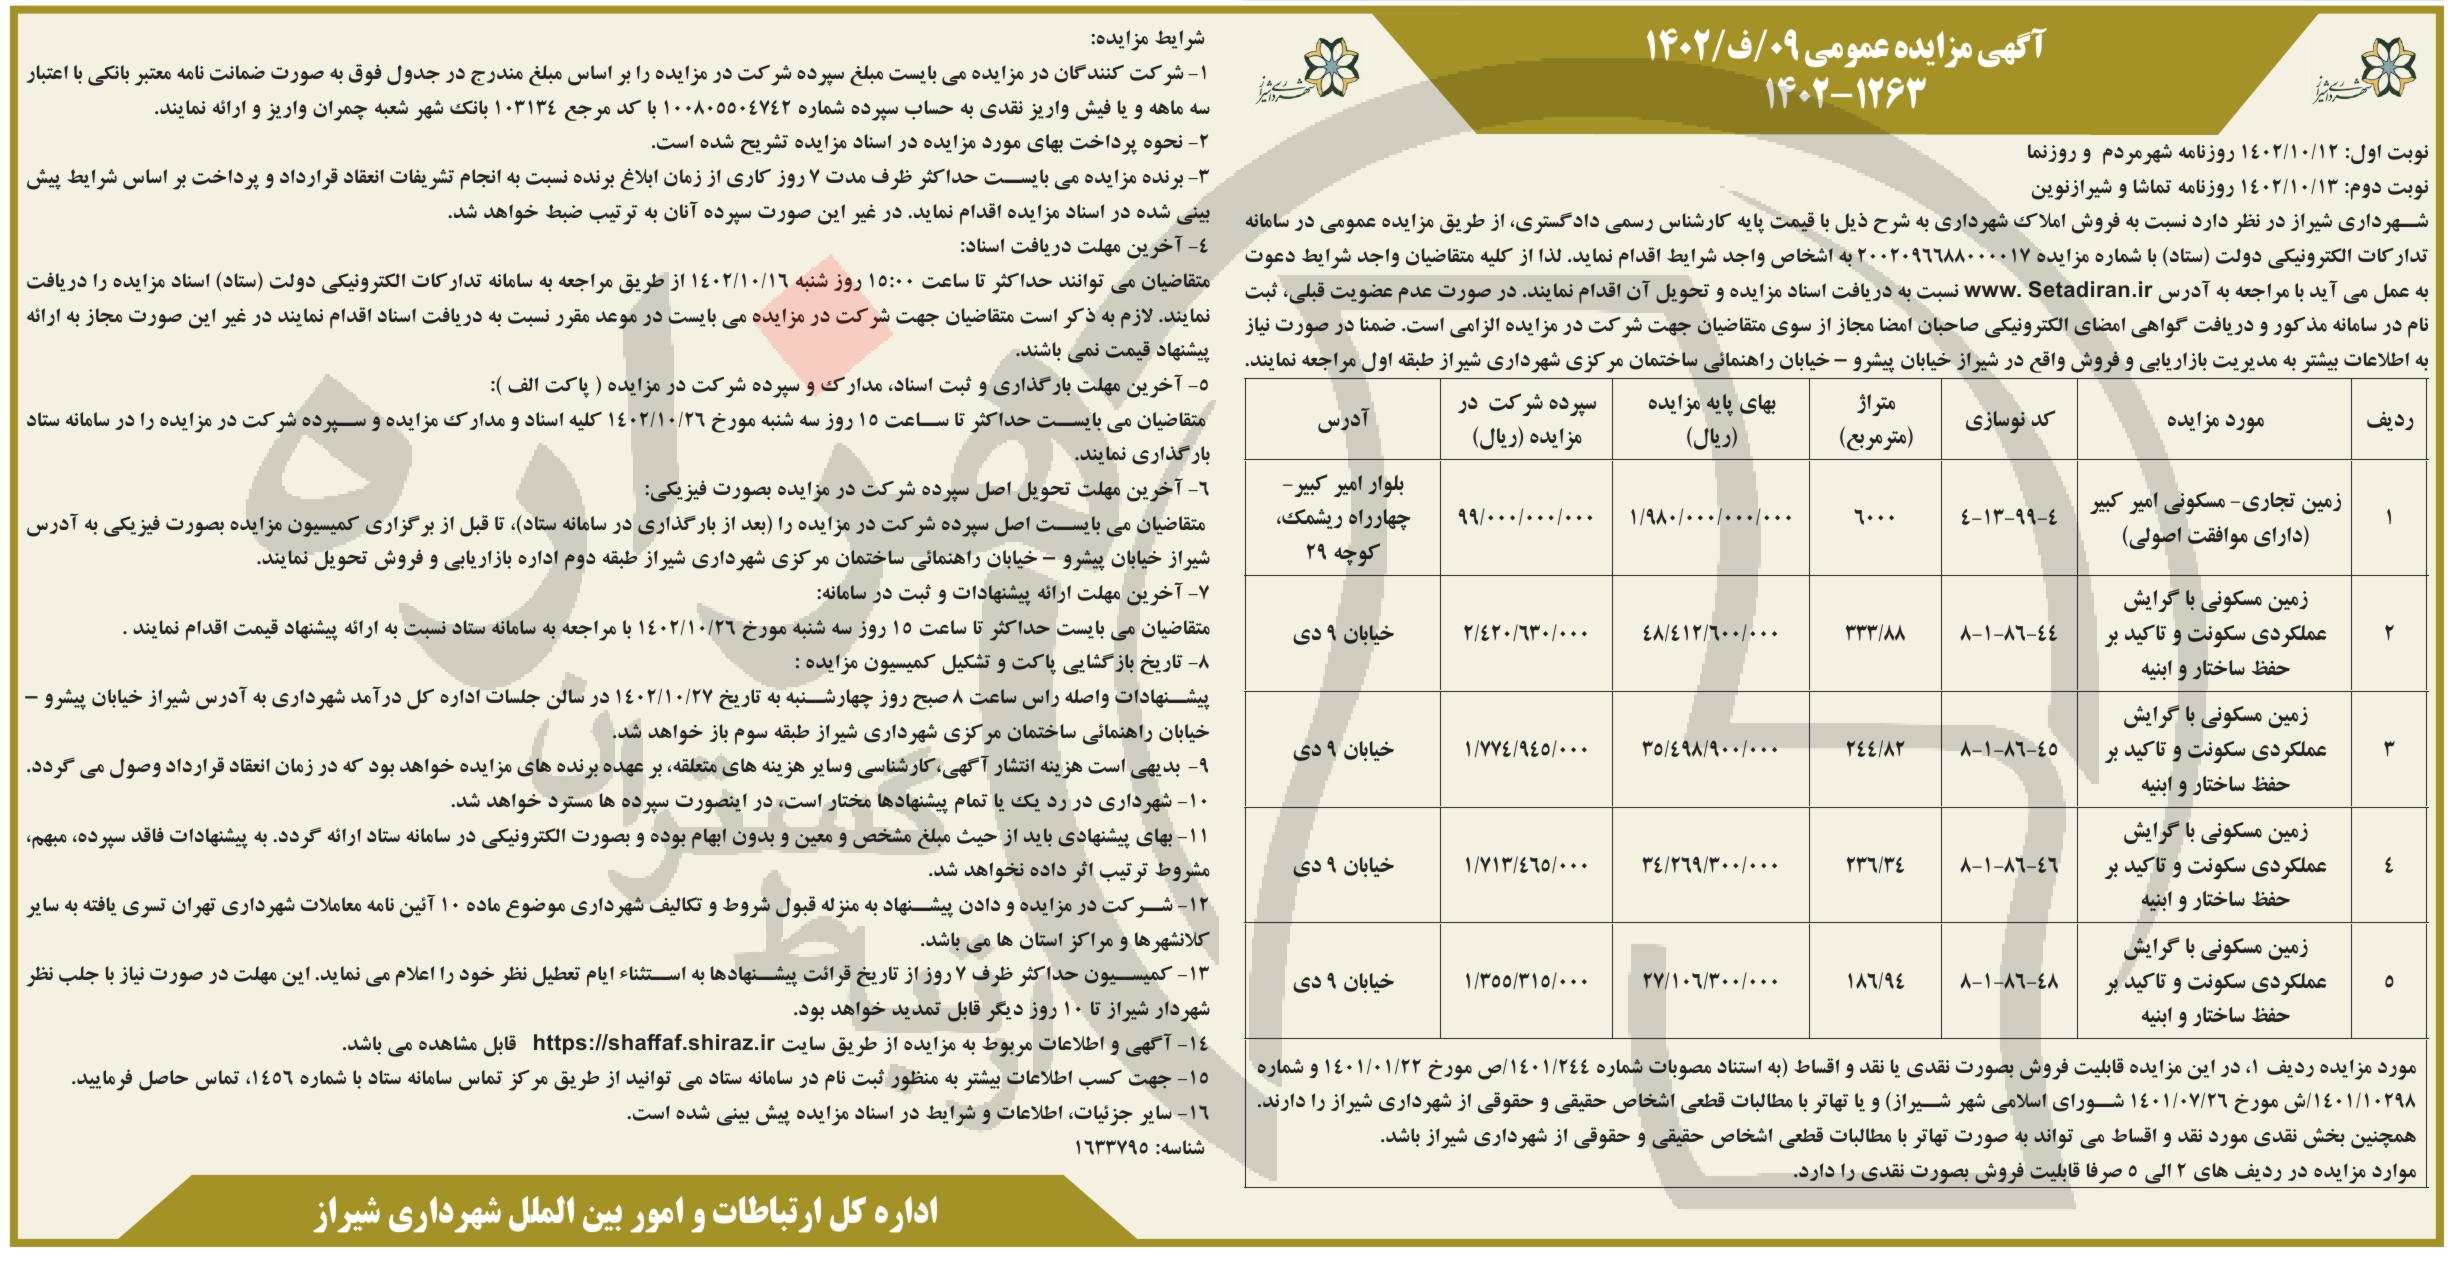 آگهی مزایده عمومی ۰۹/ف/۱۴۰۲
۱۴۰۲-۱۲۶۳
شهرداری شیراز
شهرداری شیراز
نوبت اول: ۱۴۰۲/۱۰/۱۲ روزنامه شهرمردم و روزنما
نوبت دوم: ۱۴۰۲/۱۰/۱۳ روزنامه تماشا و شیرازنوین
شهرداری شیراز در نظر دارد نسبت به فروش املاک شهرداری به شرح ذیل با قیمت پایه کارشناس رسمی دادگستری، از طریق مزایده عمومی در سامانه
تدارکات الکترونیکی دولت (ستاد) با شماره مزایده ۲۰۰۲۰۹۶۶۸۸۰۰۰۰۱۷ به اشخاص واجد شرایط اقدام نماید. لذا از کلیه متقاضیان واجد شرایط دعوت
به عمل می آید با مراجعه به آدرس www. Setadiran.ir نسبت به دریافت اسناد مزایده و تحویل آن اقدام نمایند. در صورت عدم عضویت قبلی، ثبت
نام در سامانه مذکور و دریافت گواهی امضای الکترونیکی صاحبان امضا مجاز از سوی متقاضیان جهت شرکت در مزایده الزامی است. ضمنا در صورت نیاز
به اطلاعات بیشتر به مدیریت بازاریابی و فروش واقع در شیراز خیابان پیشرو – خیابان راهنمائی ساختمان مرکزی شهرداری شیراز طبقه اول مراجعه نمایند.
ردیف مورد مزایده کد نوسازی متراژ (مترمربع) بهای پایه مزایده (ریال) سپرده شرکت در مزایده (ریال) آدرس
۱ زمین تجاری- مسکونی امیر کبیر (دارای موافقت اصولی) ۴-۱۳-۹۹-۴ ۶۰۰۰ ۱/۹۸۰/۰۰۰/۰۰۰/۰۰۰ ۹۹/۰۰۰/۰۰۰/۰۰۰ بلوار امیر کبیر- چهارراه ریشمک، کوچه ۲۹
۲ زمین مسکونی با گرایش عملکردی سکونت و تاکید بر حفظ ساختار و ابنیه ۸-۱-۸۶-۴۴ ۳۳۳/۸۸ ۴۸/۴۱۲/۶۰۰/۰۰۰ ۲/۴۲۰/۶۳۰/۰۰۰ خیابان ۹ دی
۳ زمین مسکونی با گرایش عملکردی سکونت و تاکید بر حفظ ساختار و ابنیه ۸-۱-۸۶-۴۵ ۲۴۴/۸۲ ۳۵/۴۹۸/۹۰۰/۰۰۰ ۱/۷۷۴/۹۴۵/۰۰۰ خیابان ۹ دی
۴ زمین مسکونی با گرایش عملکردی سکونت و تاکید بر حفظ ساختار و ابنیه ۸-۱-۸۶-۴۶ ۲۳۶/۳۴ ۳۴/۲۶۹/۳۰۰/۰۰۰ ۱/۷۱۳/۴۶۵/۰۰۰ خیابان ۹ دی
۵ زمین مسکونی با گرایش عملکردی سکونت و تاکید بر حفظ ساختار و ابنیه ۸-۱-۸۶-۴۸ ۱۸۶/۹۴ ۲۷/۱۰۶/۳۰۰/۰۰۰ ۱/۳۵۵/۳۱۵/۰۰۰ خیابان ۹ دی
مورد مزایده ردیف ۱، در این مزایده قابلیت فروش بصورت نقدی یا نقد و اقساط (به استناد مصوبات شماره ۱۴۰۱/۲۴۴/ص مورخ ۱۴۰۱/۰۱/۲۲ و شماره
۱۴۰۱/۱۰۲۹۸/ش مورخ ۱۴۰۱/۰۷/۲۶ شورای اسلامی شهر شیراز) و یا تهاتر با مطالبات قطعی اشخاص حقیقی و حقوقی از شهرداری شیراز را دارند.
همچنین بخش نقدی مورد نقد و اقساط می تواند به صورت تهاتر با مطالبات قطعی اشخاص حقیقی و حقوقی از شهرداری شیراز باشد.
موارد مزایده در ردیف های ۲ الی ۵ صرفا قابلیت فروش بصورت نقدی را دارد.
شرایط مزایده:
۱- شرکت کنندگان در مزایده می بایست مبلغ سپرده شرکت در مزایده را بر اساس مبلغ مندرج در جدول فوق به صورت ضمانت نامه معتبر بانکی با اعتبار
سه ماهه و یا فیش واریز نقدی به حساب سپرده شماره ۱۰۰۸۰۵۵۰۴۷۴۲ با کد مرجع ۱۰۳۱۳۴ بانک شهر شعبه چمران واریز و ارائه نمایند.
۲- نحوه پرداخت بهای مورد مزایده در اسناد مزایده تشریح شده است.
۳- برنده مزایده می بایست حداکثر ظرف مدت ۷ روز کاری از زمان ابلاغ برنده نسبت به انجام تشریفات انعقاد قرارداد و پرداخت بر اساس شرایط پیش
بینی شده در اسناد مزایده اقدام نماید. در غیر این صورت سپرده آنان به ترتیب ضبط خواهد شد.
۴- آخرین مهلت دریافت اسناد:
متقاضیان می توانند حداکثر تا ساعت ۱۵:۰۰ روز شنبه ۱۴۰۲/۱۰/۱۶ از طریق مراجعه به سامانه تدارکات الکترونیکی دولت (ستاد) اسناد مزایده را دریافت
نمایند. لازم به ذکر است متقاضیان جهت شرکت در مزایده می بایست در موعد مقرر نسبت به دریافت اسناد اقدام نمایند در غیر این صورت مجاز به ارائه
پیشنهاد قیمت نمی باشند.
۵- آخرین مهلت بارگذاری و ثبت اسناد، مدارک و سپرده شرکت در مزایده ( پاکت الف ):
متقاضیان می بایست حداکثر تا ساعت ۱۵ روز سه شنبه مورخ ۱۴۰۲/۱۰/۲۶ کلیه اسناد و مدارک مزایده و سپرده شرکت در مزایده را در سامانه ستاد
بارگذاری نمایند.
۶- آخرین مهلت تحویل اصل سپرده شرکت در مزایده بصورت فیزیکی:
متقاضیان می بایست اصل سپرده شرکت در مزایده را (بعد از بارگذاری در سامانه ستاد)، تا قبل از برگزاری کمیسیون مزایده بصورت فیزیکی به آدرس
شیراز خیابان پیشرو – خیابان راهنمائی ساختمان مرکزی شهرداری شیراز طبقه دوم اداره بازاریابی و فروش تحویل نمایند.
۷- آخرین مهلت ارائه پیشنهادات و ثبت در سامانه:
متقاضیان می بایست حداکثر تا ساعت ۱۵ روز سه شنبه مورخ ۱۴۰۲/۱۰/۲۶ با مراجعه به سامانه ستاد نسبت به ارائه پیشنهاد قیمت اقدام نمایند .
۸- تاریخ بازگشایی پاکت و تشکیل کمیسیون مزایده :
پیشنهادات واصله راس ساعت ۸ صبح روز چهارشنبه به تاریخ ۱۴۰۲/۱۰/۲۷ در سالن جلسات اداره کل درآمد شهرداری به آدرس شیراز خیابان پیشرو –
خیابان راهنمائی ساختمان مرکزی شهرداری شیراز طبقه سوم باز خواهد شد.
۹- بدیهی است هزینه انتشار آگهی،کارشناسی وسایر هزینه های متعلقه، بر عهده برنده های مزایده خواهد بود که در زمان انعقاد قرارداد وصول می گردد.
۱۰- شهرداری در رد یک یا تمام پیشنهادها مختار است، در اینصورت سپرده ها مسترد خواهد شد.
۱۱- بهای پیشنهادی باید از حیث مبلغ مشخص و معین و بدون ابهام بوده و بصورت الکترونیکی در سامانه ستاد ارائه گردد. به پیشنهادات فاقد سپرده، مبهم،
مشروط ترتیب اثر داده نخواهد شد.
۱۲- شرکت در مزایده و دادن پیشنهاد به منزله قبول شروط و تکالیف شهرداری موضوع ماده ۱۰ آئین نامه معاملات شهرداری تهران تسری یافته به سایر
کلانشهرها و مراکز استان ها می باشد.
۱۳- کمیسیون حداکثر ظرف ۷ روز از تاریخ قرائت پیشنهادها به استثناء ایام تعطیل نظر خود را اعلام می نماید. این مهلت در صورت نیاز با جلب نظر
شهردار شیراز تا ۱۰ روز دیگر قابل تمدید خواهد بود.
۱۴- آگهی و اطلاعات مربوط به مزایده از طریق سایت https://shaffaf.shiraz.ir قابل مشاهده می باشد.
۱۵- جهت کسب اطلاعات بیشتر به منظور ثبت نام در سامانه ستاد می توانید از طریق مرکز تماس سامانه ستاد با شماره ۱۴۵۶، تماس حاصل فرمایید.
۱۶- سایر جزئیات، اطلاعات و شرایط در اسناد مزایده پیش بینی شده است.
شناسه: ۱۶۳۳۷۹۵
اداره کل ارتباطات و امور بین الملل شهرداری شیراز
هزاره
گستران
ارتباط